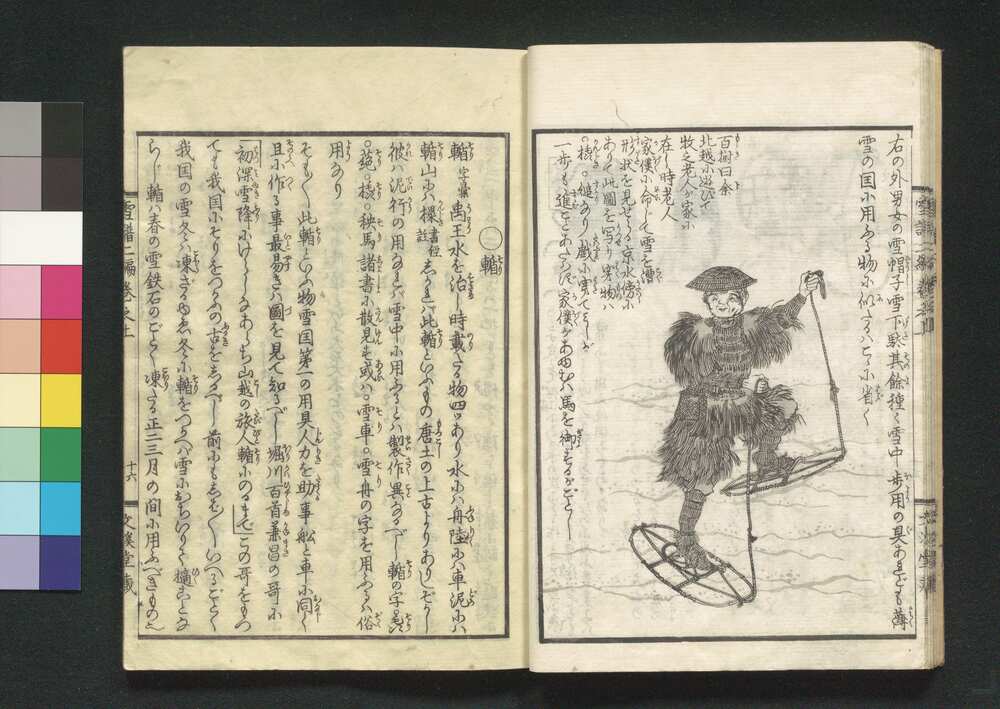 右の外男女の雪帽子雪下駄其餘種々雪中歩用の具あれども薄
雪の国に用ふる物に似たるはこゝに省く
百樹曰余
北越に遊びて
牧之老人が家に
在し時老人
家僕に命じて雪を漕
形状を見せらる京水傍に
ありて此圖を写り穿物は
○橇○縋なり戯に穿てしが
一歩も進ことあたはず家僕があゆむは馬を御するがごとし
○輴
輴字彙禹王水を治し時載たる物四ツあり水には舟陸には車泥には
輴山には樏書経註しかれば此輴といふもの唐土の上古よりありしぞかし
彼は泥行の用なれば雪中に用ふるとは製作異なるべし輴の字
○橇○秧馬諸書に散見す或は○雪車○雪舟の字を用ふるは俗
用なり
そも〳〵此輴といふ物雪国第一の用具人力を助事船と車に同く
且に作る事最易きは圖を見て知るべし堀川百首兼昌の哥に
初深雪降にけらしなあらち山越の旅人輴にのるまでこの哥をもつ
ても我国にそりをつかふの古をしるべし前にもしば〳〵いへるごとく
我国の雪冬は凍ざるゆゑ冬に輴をつかへば雪におちいりて撬ことな
らじ輴は春の雪鉄石のごとく凍たる正二三月の間に用ふべきもの也
雪譜二編巻之上
十六
文溪堂蔵